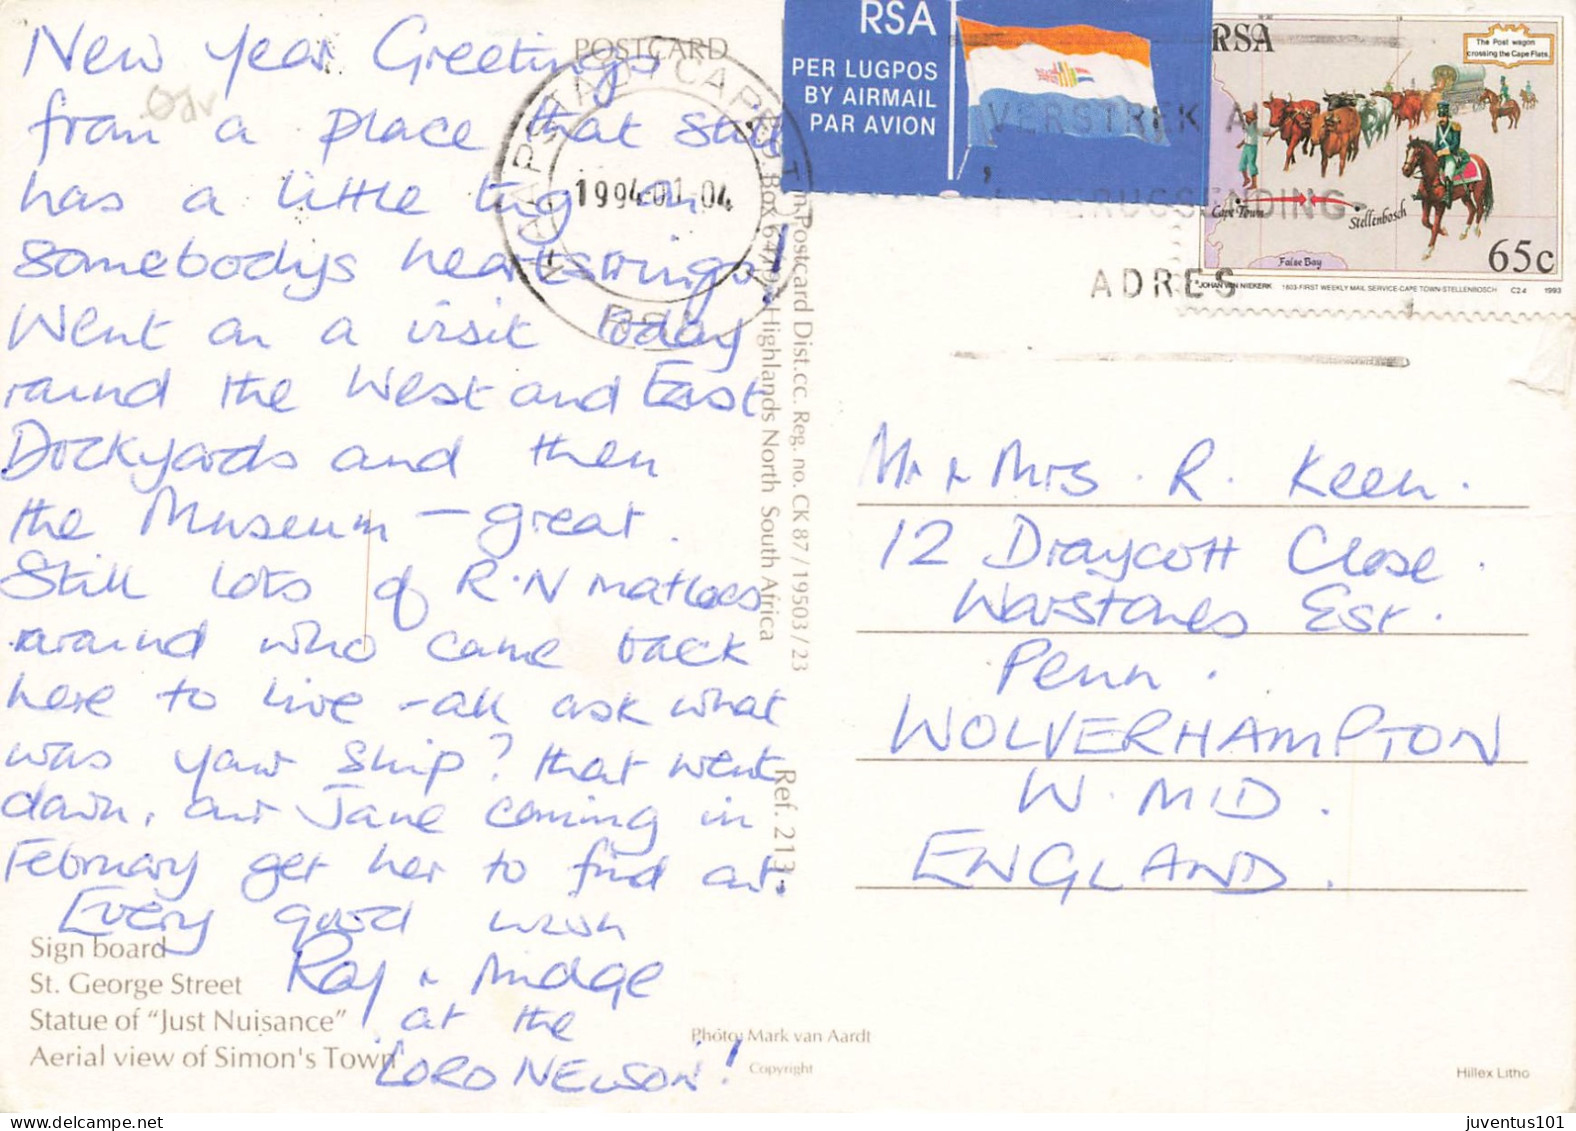 New Year Greetings
from a place that still
has a little tug on
somebodys heartstrings!
Went on a visit today
round the West and East
Dockyards and then
the Museum - great.
Still lots of R.N matloes
around who came back
here to live - all ask what
was your ship? that went
down, our Jane coming in
February get her to find out.
Every good wish
Ray & Midge
at the
'LORD NELSON'!
Sign board
St. George Street
Statue of "Just Nuisance"
Aerial view of Simon's Town
POSTCARD
KAAPSTAD CAPE TOWN
1994-01-04
RSA
Postcard Dist.cc. Reg. no. CK 87/19503/23
Highlands North South Africa
Ref. 213
Photo: Mark van Aardt
Copyright
RSA
PER LUGPOS
BY AIRMAIL
PAR AVION
VERSTREK
TERUGSENDING-
ADRES
RSA
The Post wagon
crossing the Cape Flats.
Cape Town
Stellenbosch
False Bay
65c
JOHAN VAN NIEKERK 1803-FIRST WEEKLY MAIL SERVICE-CAPE TOWN-STELLENBOSCH C2-4 1993
Mr & Mrs. R. Keen.
12 Draycott Close.
Warstones Est.
Penn.
WOLVERHAMPTON
W. MID.
ENGLAND.
Hillex Litho
juventus101